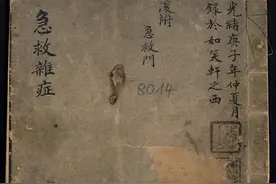 光緒庚子年仲夏月
錄於如笑軒之西
後附
急救門
急救雜症
8014